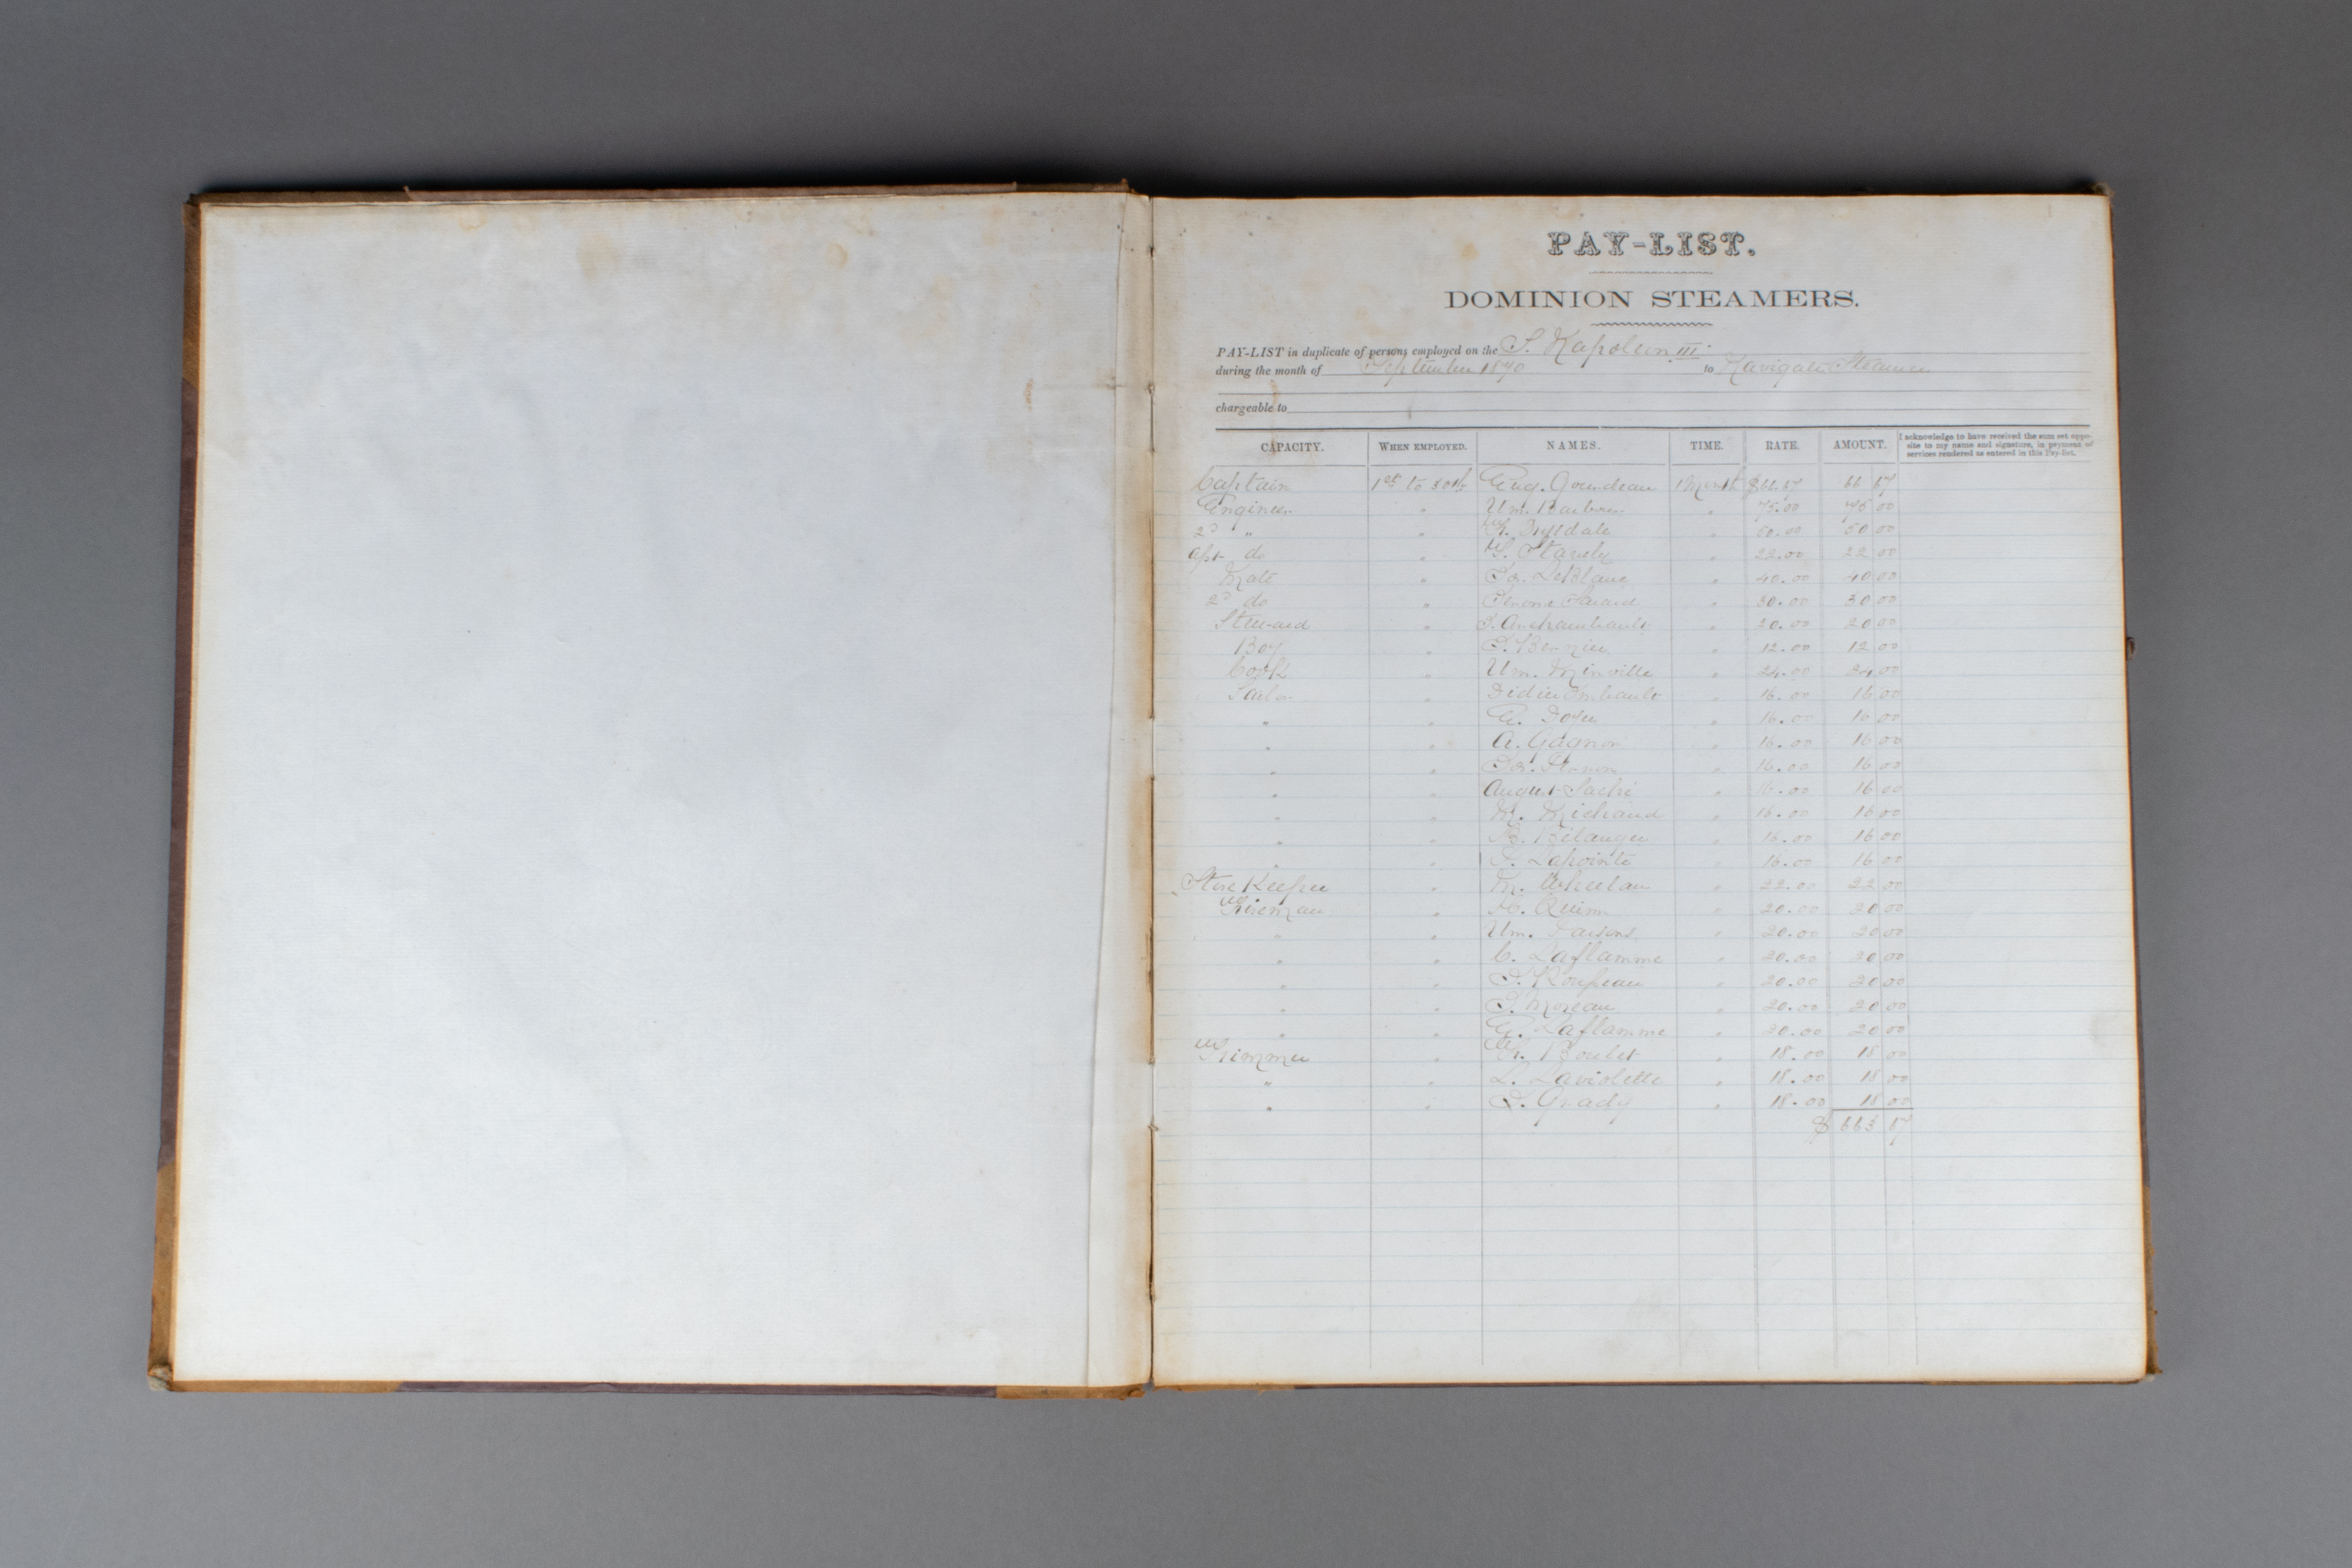 PAY-LIST.
DOMINION STEAMERS.
PAY-LIST in duplicate of persons employed on the S. Napoleon III.
during the month of September 1870 to Navigate Steamer
chargeable to
CAPACITY. WHEN EMPLOYED. NAMES. TIME. RATE. AMOUNT. I acknowledge to have received the sum set oppo-
site to my name and signature, in payment of
services rendered as entered in this Pay-list.
Captain 1st to 30th Aug. Gourdeau 1 Month $66.67 66 67
Engineer " Wm. " 75.00 75 00
2d " " Tyndale " 50.00 50 00
apt do " " 22.00 22 00
Mate " LeBlanc " 40.00 40 00
2d do " " 30.00 30 00
Steward " Archambault " 20.00 20 00
Boy " Bernier " 12.00 12 00
Cook " Wm. Minville " 24.00 24 00
Sailor " Didier Imbault " 16.00 16 00
" " " 16.00 16 00
" " A. Gagnon " 16.00 16 00
" " " 16.00 16 00
" " August " 16.00 16 00
" " M. Michaud " 16.00 16 00
" " Bélanger " 16.00 16 00
" " Lapointe " 16.00 16 00
Store Keeper " M. Whelan " 22.00 22 00
Fireman " Quinn " 20.00 20 00
" " Wm. Parsons " 20.00 20 00
" " C. Laflamme " 20.00 20 00
" " " 20.00 20 00
" " Moreau " 20.00 20 00
" " Laflamme " 20.00 20 00
Trimmer " Boulet " 18.00 18 00
" " L. Laviolette " 18.00 18 00
" " Grady " 18.00 18 00
$ 663 67